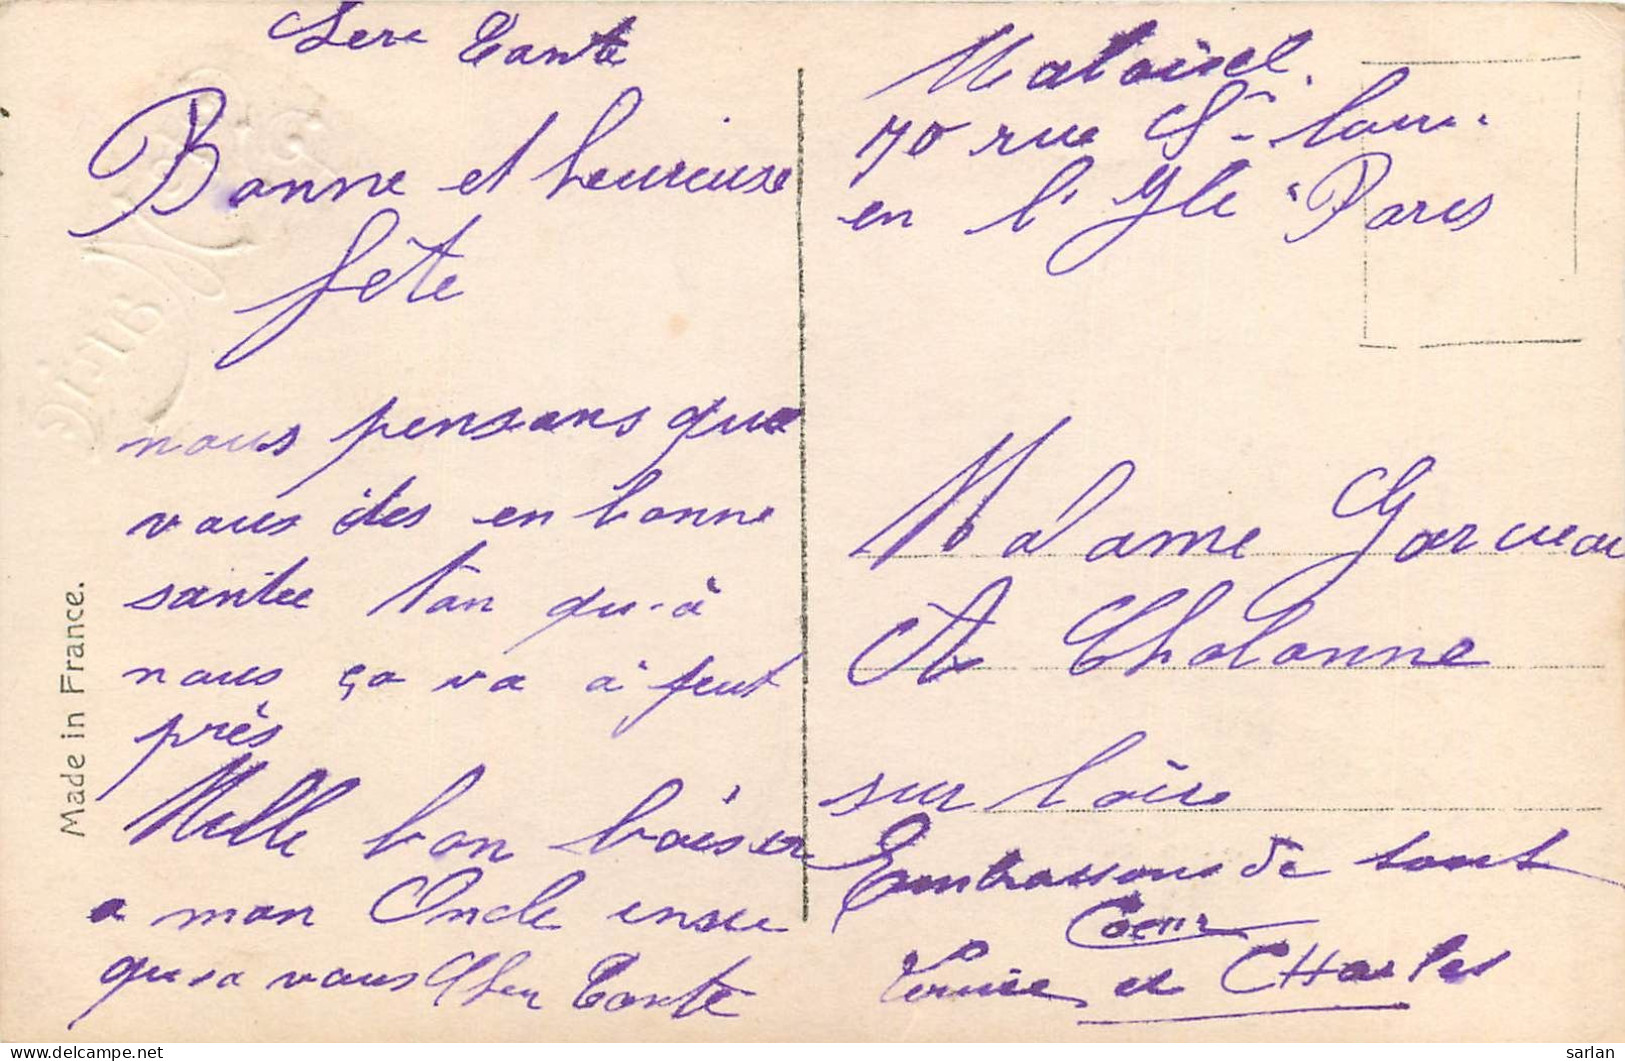 Chere Tante
Bonne et heureuse
fête
nous pensons que
vous êtes en bonne
santee tan qu-à
nous ça va à peut
près
Mille bon baiser
a mon Oncle insie
qu-a vous Cher Tante
Maloisel.
70 rue St- Loui-
en l'Yle Paris
Madame Garcueau
A Chalonne
sur Loire
Embrassons de tout
Coeur
Louise et CHarles
Made in France.
Marie
sarlan